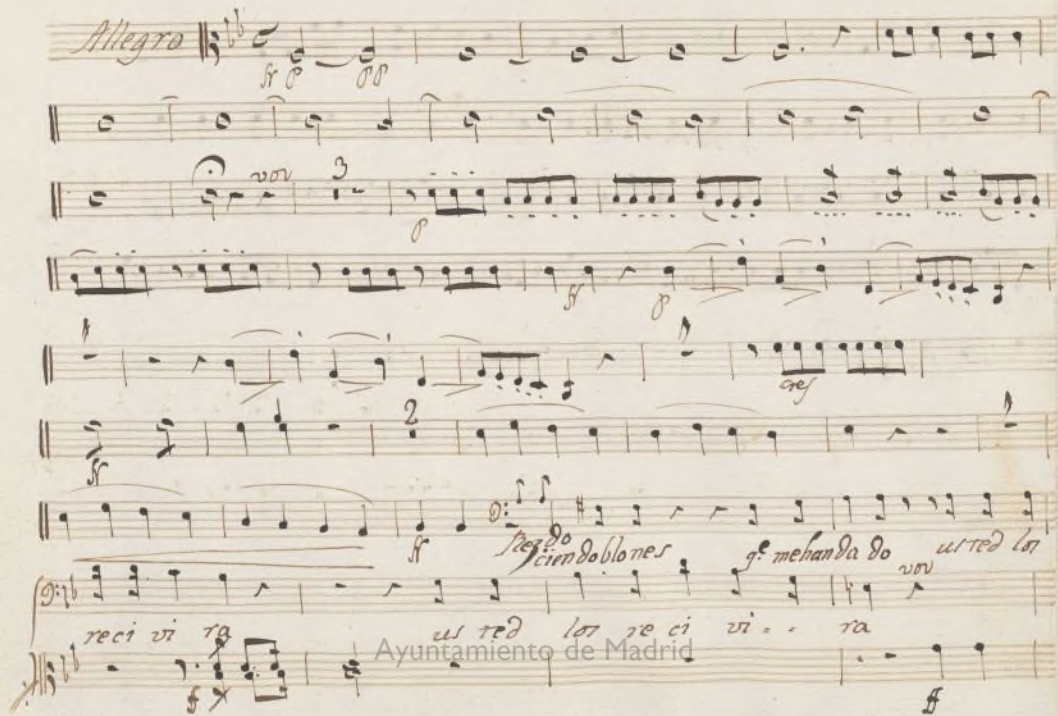 Allegro
p pp
voz
3
p
p
cres
2
Rez.do
cien doblones q.e me han da do usted los
reci vi ra us ted los re ci vi - - ra
voz
Ayuntamiento de Madrid
ff ff